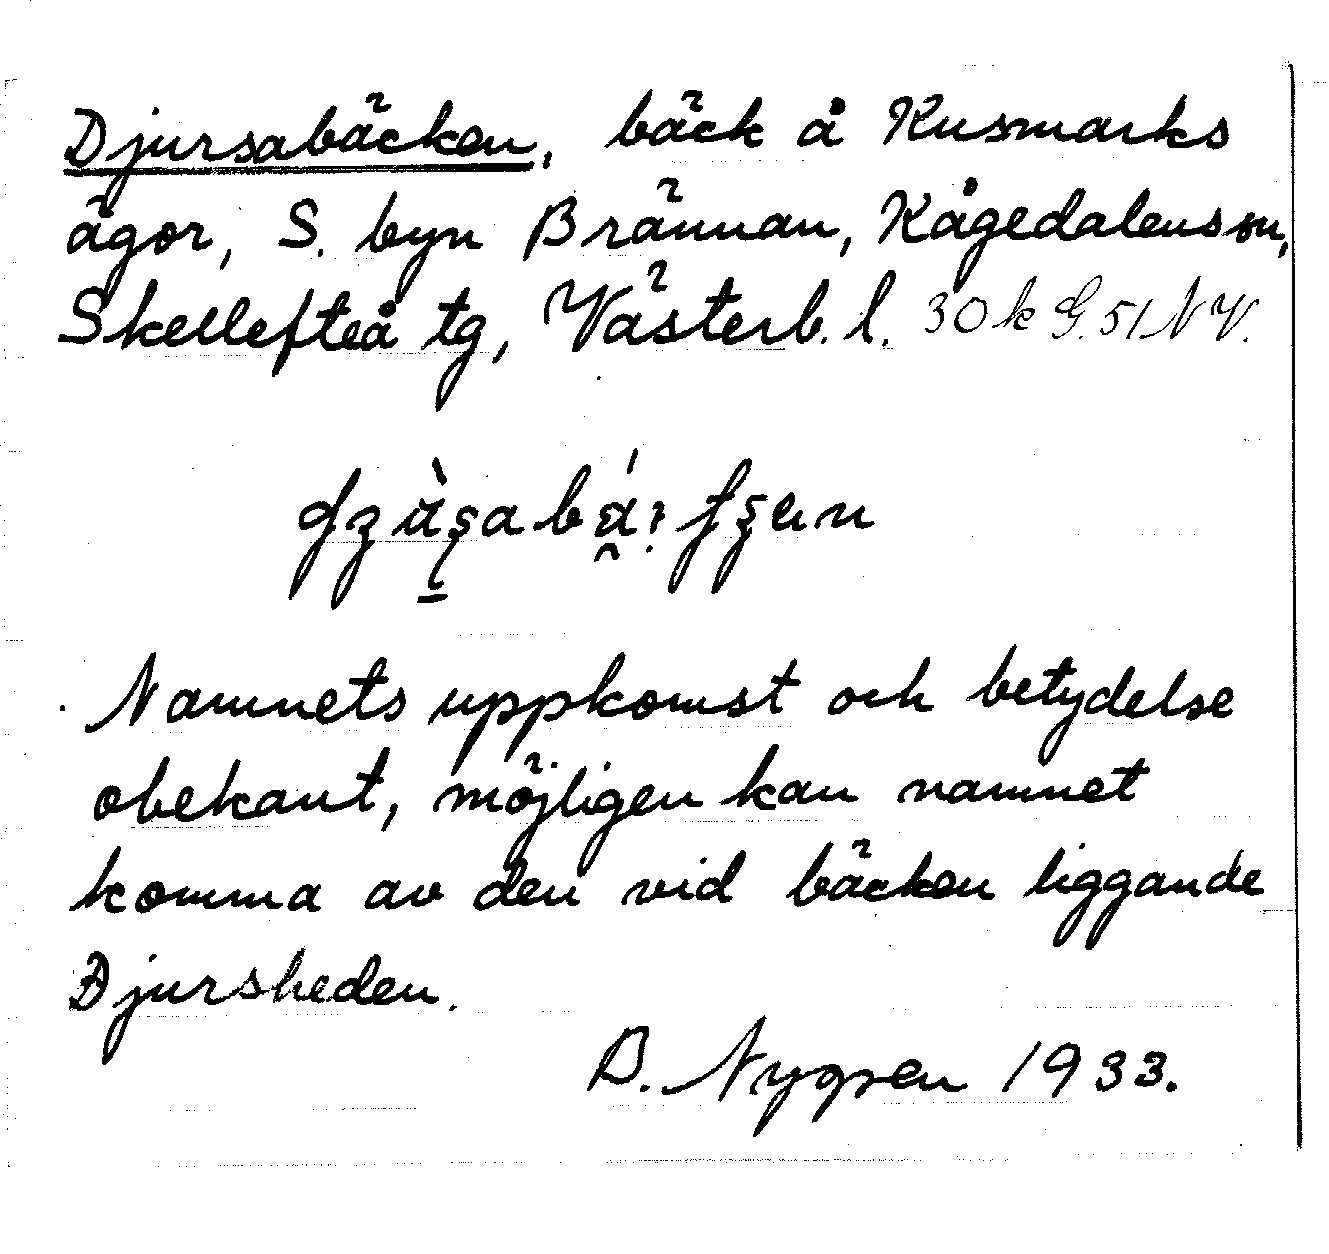 Djursabäcken, bäck å Kusmarks
ägor, S. byn Brännan, Kågedalens sn,
Skellefteå tg, Västerb. l. 30 k G. 51 N V.
Namnets uppkomst och betydelse
obekant, möjligen kan namnet
komma av den vid bäcken liggande
Djursheden.
B. Nygren 1933.